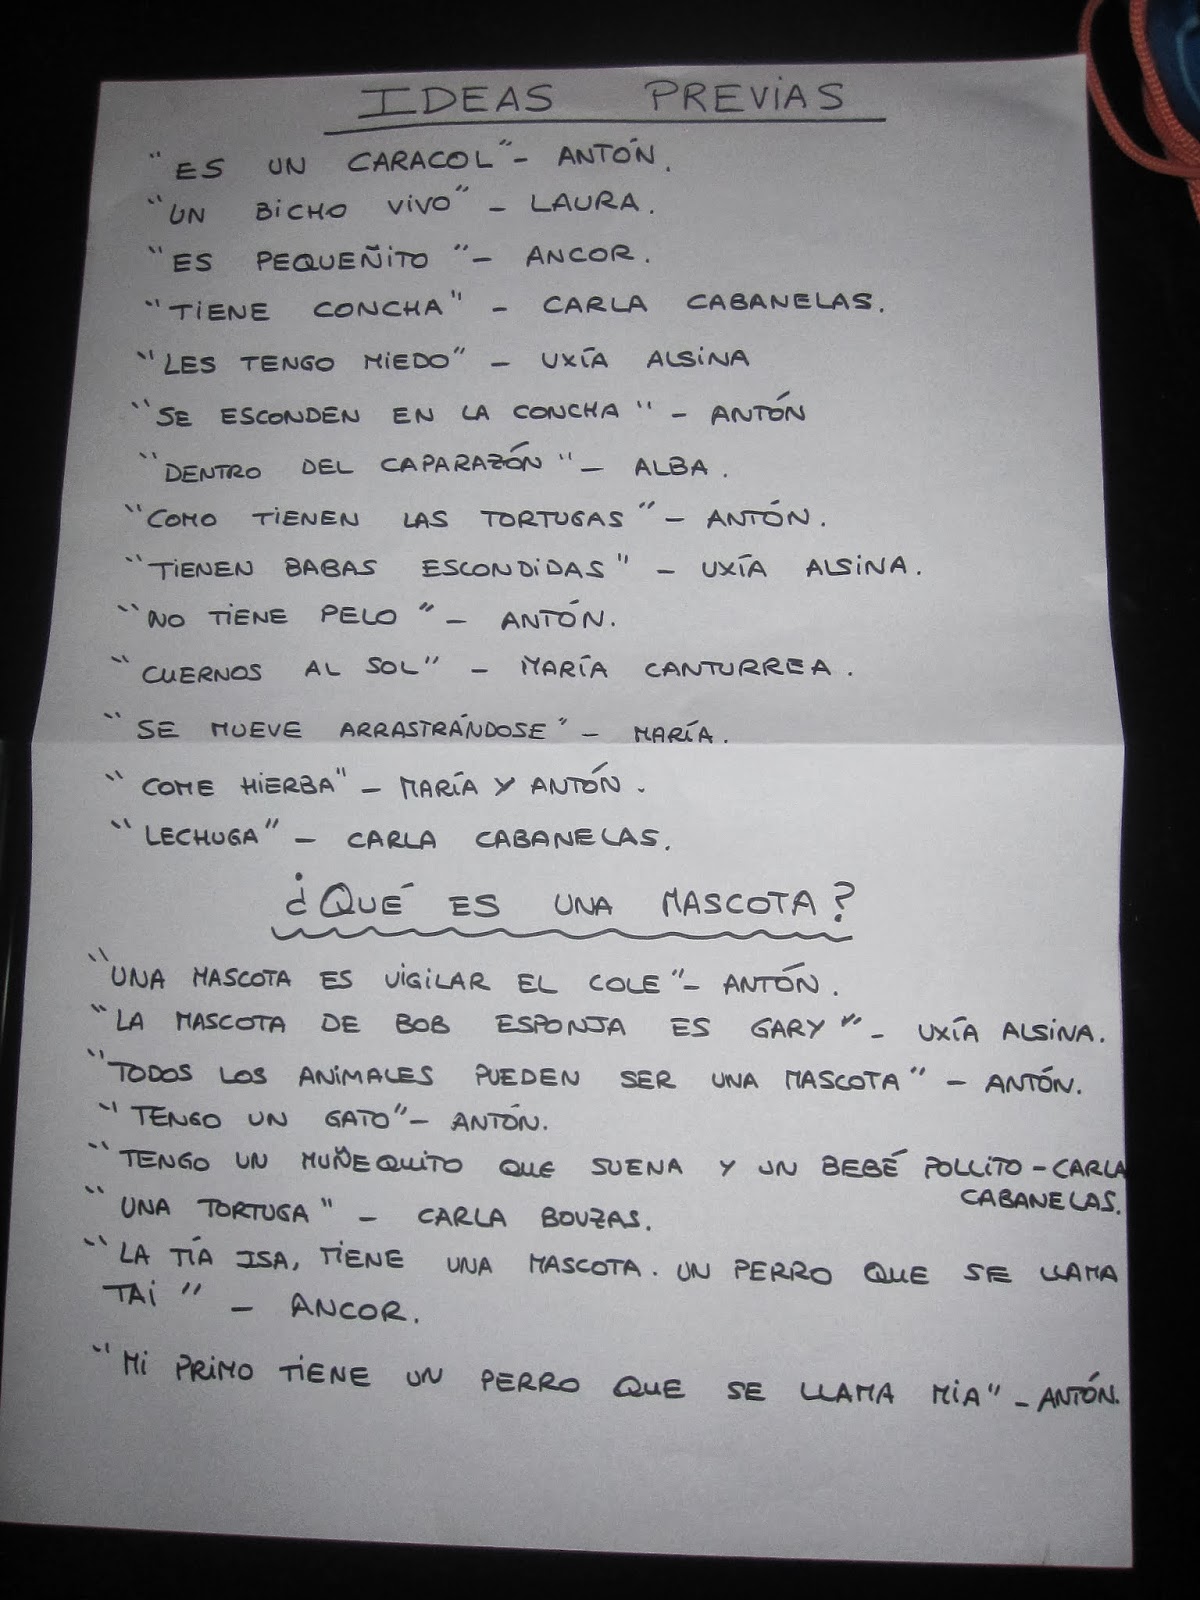 IDEAS PREVIAS
"ES UN CARACOL" - ANTÓN.
"UN BICHO VIVO" - LAURA.
"ES PEQUEÑITO" - ANCOR.
"TIENE CONCHA" - CARLA CABANELAS.
"LES TENGO MIEDO" - UXÍA ALSINA
"SE ESCONDEN EN LA CONCHA" - ANTÓN
"DENTRO DEL CAPARAZÓN" - ALBA.
"COMO TIENEN LAS TORTUGAS" - ANTÓN.
"TIENEN BABAS ESCONDIDAS" - UXÍA ALSINA.
"NO TIENE PELO" - ANTÓN.
"CUERNOS AL SOL" - MARÍA CANTURREA.
"SE MUEVE ARRASTRÁNDOSE" - MARÍA.
"COME HIERBA" - MARÍA Y ANTÓN.
"LECHUGA" - CARLA CABANELAS.
¿QUÉ ES UNA MASCOTA?
"UNA MASCOTA ES VIGILAR EL COLE" - ANTÓN.
"LA MASCOTA DE BOB ESPONJA ES GARY" - UXÍA ALSINA.
"TODOS LOS ANIMALES PUEDEN SER UNA MASCOTA" - ANTÓN.
"TENGO UN GATO" - ANTÓN.
"TENGO UN MUÑEQUITO QUE SUENA Y UN BEBÉ POLLITO - CARLA
CABANELAS.
"UNA TORTUGA" - CARLA BOUZAS.
"LA TÍA ISA, TIENE UNA MASCOTA. UN PERRO QUE SE LLAMA
TAI" - ANCOR.
"MI PRIMO TIENE UN PERRO QUE SE LLAMA MIA" - ANTÓN.